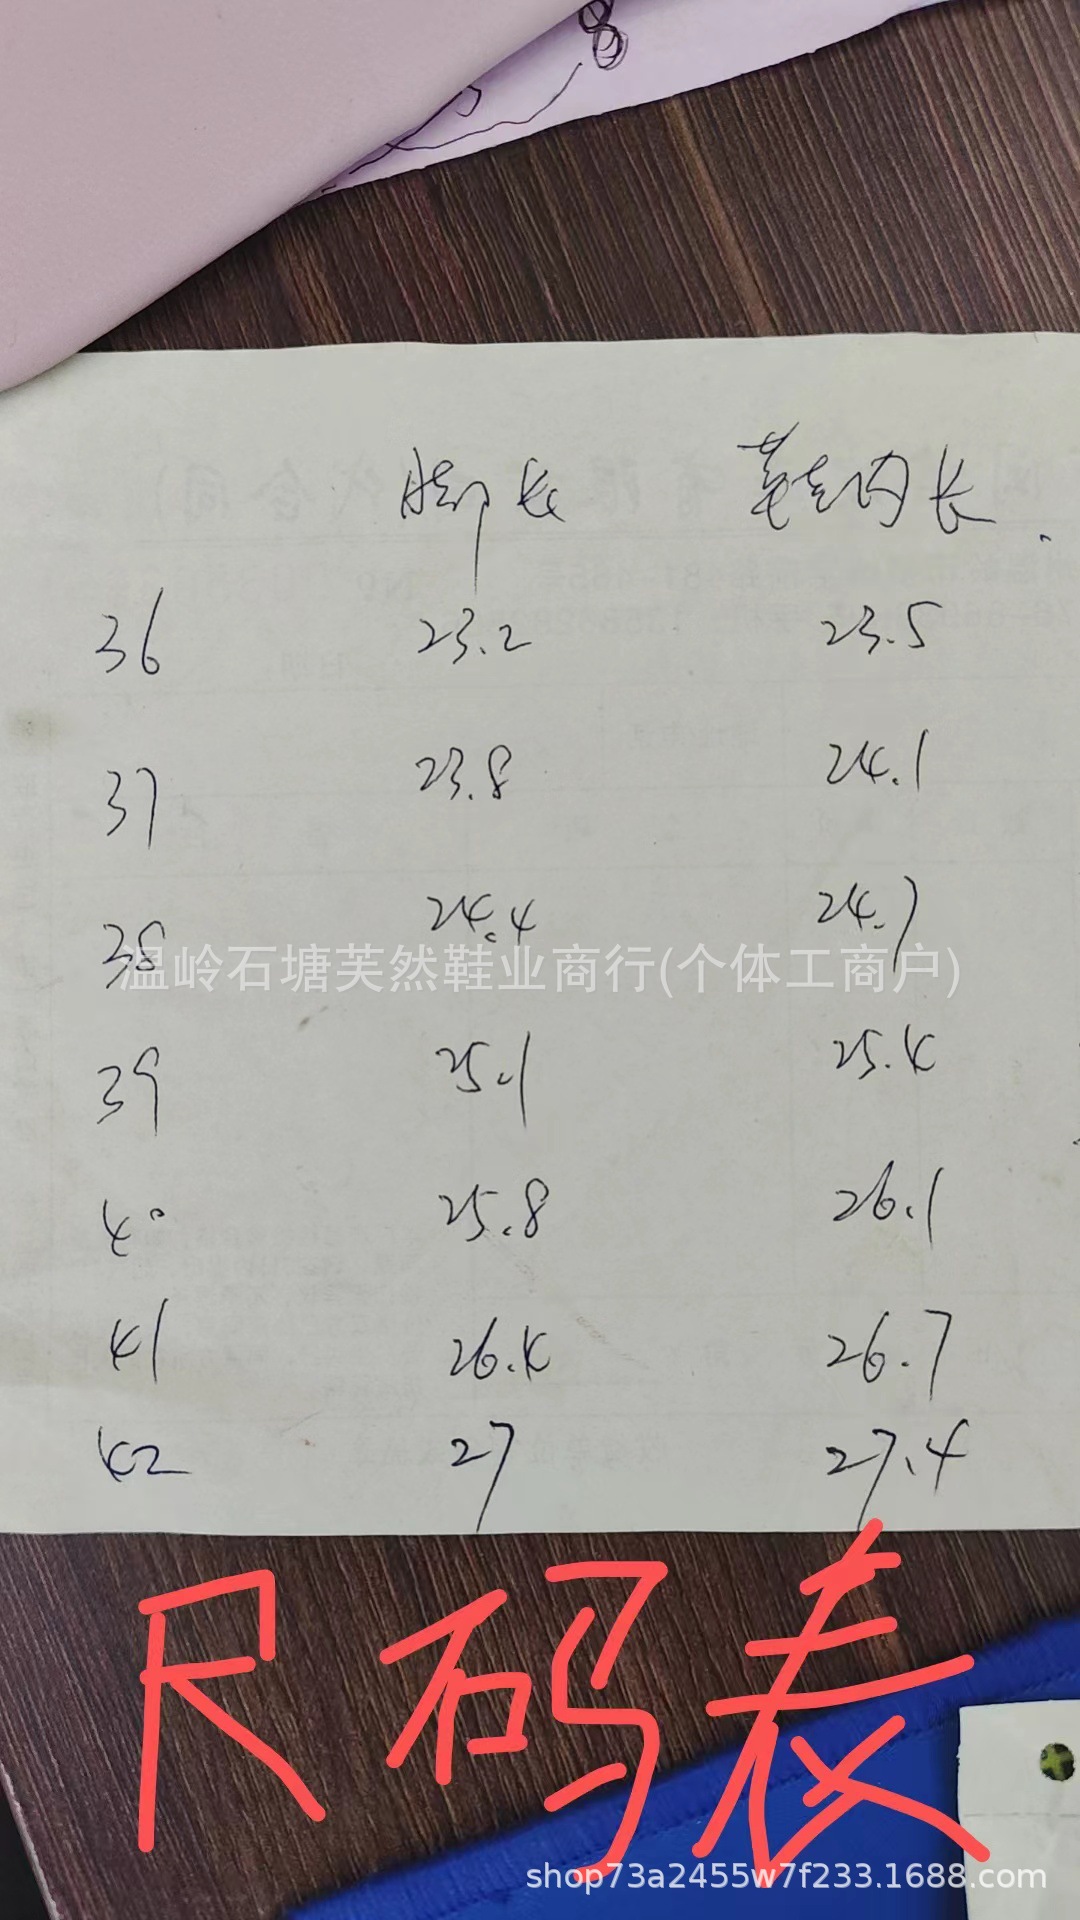 8
脚长 鞋内长
36 23.2 23.5
37 23.8 24.1
38 24.4 24.7
温岭石塘芙然鞋业商行(个体工商户)
39 25.1 25.4
40 25.8 26.1
41 26.4 26.7
42 27 27.4
尺码表
shop73a2455w7f233.1688.com